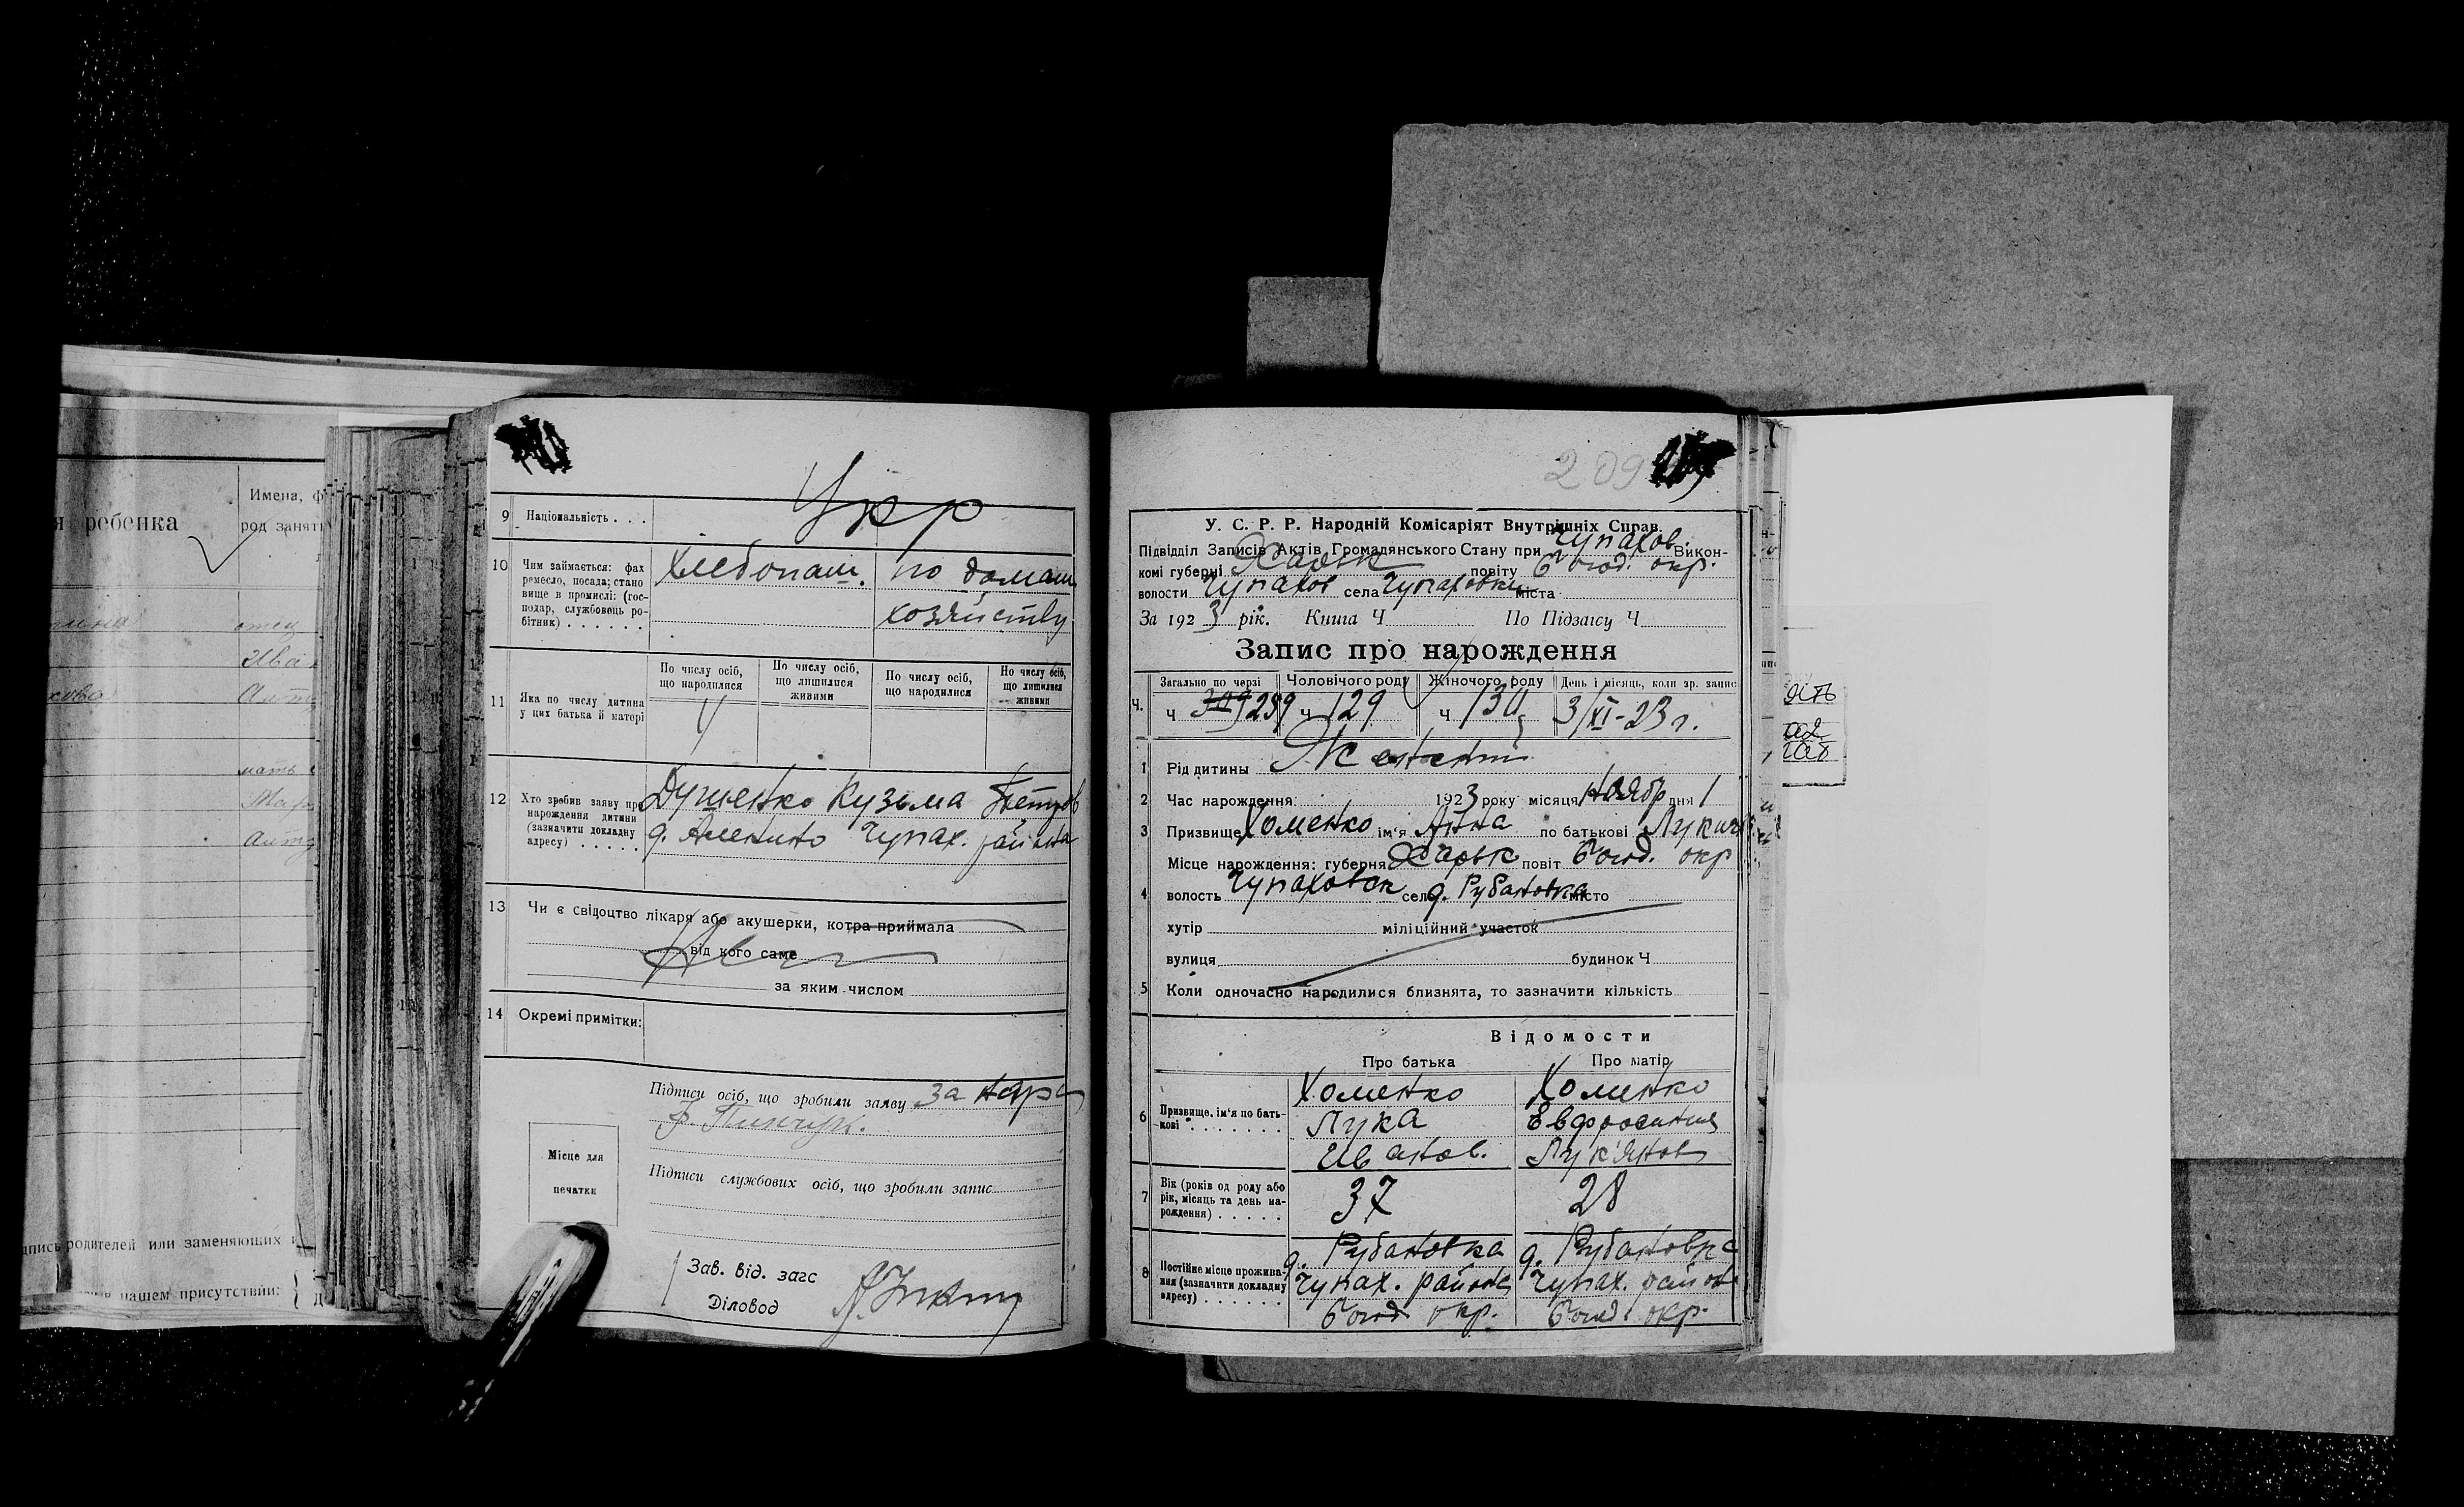 я ребенка
Имена, ф
род заняті
отец
Ива
мать
дпись родителей или заменяющих
в нашем присутствии:
9 Національність . . .
Укр
10 Чим займається: фах
ремесло, посада; стано
вище в промислі: (гос-
подар, службовець ро-
бітник) . . . . . .
Хлебопаш. по домаш.
хозяйству
11 Яка по числу дитина
у цих батька й матері
По числу осіб,
що народилися
По числу осіб,
що лишилися
живими
По числу осіб,
що народилися
По числу осіб,
що лишилися
живими
4
12 Хто зробив заяву про
нарождення дитини
(зазначити докладну
адресу) . . . . .
Кузьма Петров
д. Аленино Чупах. района
13 Чи є свідоцтво лікаря або акушерки, котра приймала
від кого саме
за яким числом
14 Окремі примітки:
Підписи осіб, що зробили заяву за негр
Місце для
печатки
Підписи службових осіб, що зробили запис
Зав. від. загс
Діловод
209
У. С. Р. Р. Народній Комісаріят Внутрішніх Справ.
Підвідділ Записів Актів Громадянського Стану при Чупахов. Викон-
комі губерні Харьк повіту Богод. окр.
волости Чупахов села Чупаховки міста
За 1923 рік. Книга Ч По Підзагсу Ч
Запис про нарождення
Загально по черзі Чоловічого роду Жіночого роду День і місяць, коли зр. запис
Ч. Ч 259 Ч 129 Ч 130 3/XI-23 г.
1 Рід дитини Женский
2 Час нарождення: 1923 року місяця Ноябр дня 1
3 Призвище Хоменко ім'я Анна по батькові Лукич
Місце нарождення: губерня Харьк повіт Богод. окр
4 волость Чупаховск село д. Рубановка місто
хутір міліційний участок
вулиця будинок Ч
5 Коли одночасно народилися близнята, то зазначити кількість
Відомости
Про батька Про матір
6 Призвище, ім'я по бать-
кові . . . . . . . .
Хоменко Хоменко
Лука Евфросиния
Иванов. Лук'янов
7 Вік (років од роду або
рік, місяць та день на-
рождення) . . . . .
37 28
8 Постійне місце прожива-
ння (зазначити докладну
адресу) . . . . . . .
д. Рубановка д. Рубановка
Чупах. района Чупах. района
Богод. окр. Богод. окр.